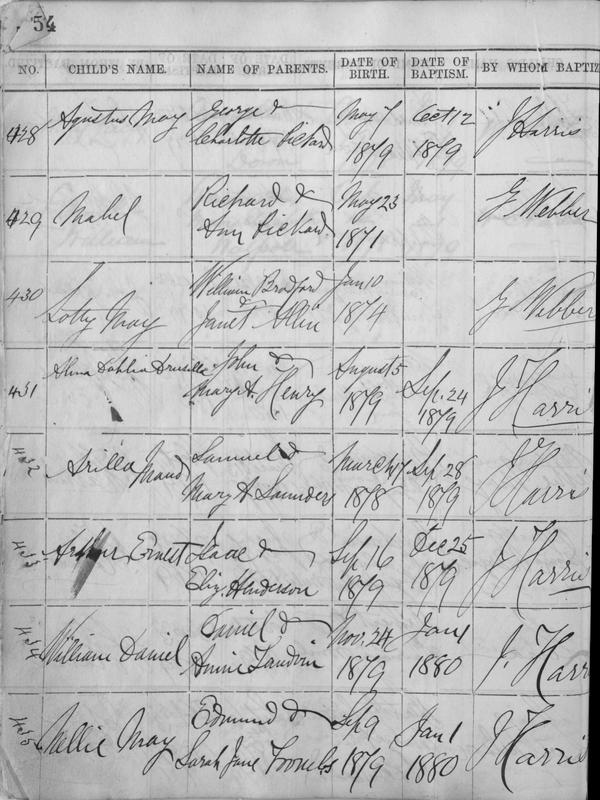 54
NO. CHILD'S NAME. NAME OF PARENTS. DATE OF BIRTH. DATE OF BAPTISM. BY WHOM BAPTIZ
428 Agustus May George & May 7 Oct 12 J Harris
Charlotte Pickard 1879 1879
429 Mabel Richard & May 23 G Webber
Ann Pickard 1871
430 Lotty May William Bradford Jan 10 G Webber
& Janet Allin 1874
431 Alma Dahlia Drusilla John & August 5 Sep. 24 J Harris
Mary A. Henry 1879 1879
432 Arilla Maud Samuel & March 17 Sep 28 J Harris
Mary A Saunders 1878 1879
433 Arthur Ernest Isaac & Sep 16 Dec 25 J Harris
Eliz. Handerson 1879 1879
434 William Daniel Daniel & Nov. 24 Jan 1 J. Harr
Annie 1879 1880
435 Nellie May Edmund & Sep 9 Jan 1 J Harris
Sarah Jane Toombs 1879 1880